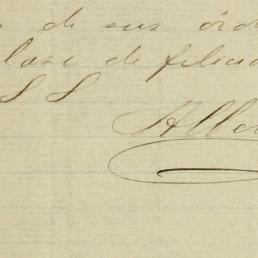 de sus órd
clase de felicid
S S
Alber